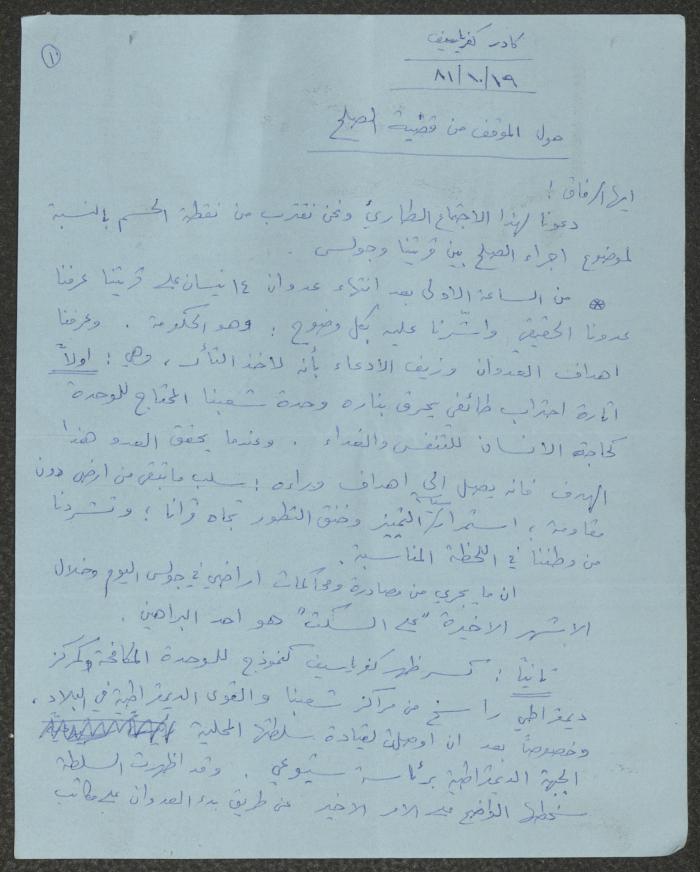 ١٠
كادر كفرياسيف
٨١/١٠/١٩
حول الموقف من قضية الصلح
ايها الرفاق !
دعونا لهذا الاجتماع الطارئ ونحن نقترب من نقطة الحسم بالنسبة
لموضوع اجراء الصلح بين قريتنا وجولس .
من الساعة الاولى بعد انتهاء عدوان ١٤ نيسان على قريتنا عرفنا
عدونا الحقيقي وأشّرنا عليه بكل وضوح : وهو الحكومة . وعرفنا
اهداف العدوان وزيف الادعاء بأنه لاخذ الثأر ، وهي : اولاً
اثارة احتراب طائفي يحرق بناره وحدة شعبنا المحتاج للوحدة
كحاجة الانسان للتنفس والغذاء . وعندما يحقق العدو هذا
الهدف فانه يصل الى اهداف وراءه : سلب ما تبقى من ارض دون
مقاومة ؛ استمرار سياسة التمييز وخنق التطور تجاه قرانا ؛ وتشردنا
من وطننا في اللحظة المناسبة .
ان ما يجري من مصادرة ومحاكمات اراضي في جولس اليوم وخلال
الاشهر الاخيرة "على السكت" هو احد البراهين .
ثانياً : كسر ظهر كفرياسيف كنموذج للوحدة المكافحة وكمركز
ديمقراطي راسخ من مراكز شعبنا والقوى الديمقراطية في البلاد ،
وخصوصاً بعد ان اوصلت لقيادة سلطتها المحلية
الجبهة الديمقراطية برئاسة شيوعي . وقد اظهرت السلطة
سخطها الواضح على الامر الاخير عن طريق بدء العدوان على مكاتب